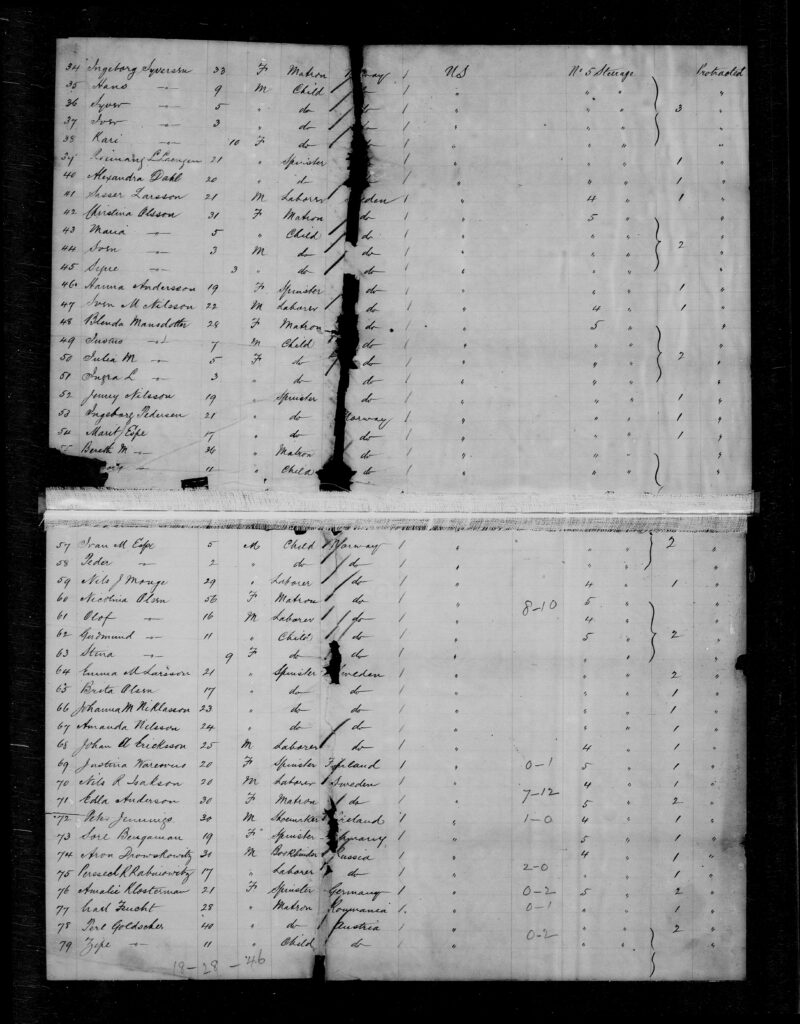 34 Ingeborg Syversen 33 F Matron way 1 US No 5 Steerage Protracted
35 Hans " 9 M Child do 1 " " " "
36 Syver " 5 " do do 1 " " " 3 "
37 Iver " 3 " do do 1 " " " "
38 Kari " 10 F do do 1 " " " "
39 21 " Spinster do 1 " " " 1 "
40 Alexandra Dahl 20 " do do 1 " " " 1 "
41 Larsson 21 M Laborer eden 1 " 4 " 1 "
42 Christina Olsson 31 F Matron do 1 " 5 " "
43 Maria " 5 " Child do 1 " " " "
44 Sven " 3 M do do 1 " " " 2 "
45 " 3 " do do 1 " " " "
46 Hanna Andersson 19 F Spinster do 1 " " " 1 "
47 Sven M Nilsson 22 M Laborer do 1 " 4 " 1 "
48 Blenda Mansdotter 28 F Matron do 1 " 5 " "
49 " 7 M Child do 1 " " " "
50 Julia M " 5 F do do 1 " " " 2 "
51 Ingra L " 3 " do do 1 " " " "
52 Jenny Nilsson 19 " Spinster do 1 " " " 1 "
53 Ingeborg Pedersen 21 " do Norway 1 " " " 1 "
54 Marit Espe 17 " do do 1 " " " 1 "
Bereth M " 36 " Matron do 1 " " " "
" 11 " Child do 1 " " " "
57 Ivan M Espe 5 M Child Norway 1 " " " 2 "
58 Peder " 2 " do do 1 " " " "
59 Nils J Monge 29 " Laborer do 1 " 4 " 1 "
60 Nicolina Olsen 56 F Matron do 1 " 8-10 5 " "
61 Olof " 16 M Laborer do 1 " 4 " "
62 Gudmund " 11 " Child do 1 " 5 " 2 "
63 Stina " 9 F do do 1 " " " "
64 Emma M Larsson 21 " Spinster Sweden 1 " " " 2 "
65 Brita Olsen 17 " do do 1 " " " 1 "
66 Johanna M Niklasson 23 " do do 1 " " " 1 "
67 Amanda Nilsson 24 " do do 1 " " " 1 "
68 Johan A Ericksson 25 M Laborer do 1 " 4 " 1 "
69 Justina 20 F Spinster Finland 1 " 0-1 5 " 1 "
70 Nils R Isakson 20 M Laborer Sweden 1 " 4 " 1 "
71 Edla Anderson 30 F Matron do 1 " 7-12 5 " 2 "
72 Peter Jennings 30 M Shoemaker Ireland 1 " 1-0 4 " 1 "
73 Sore Bengaman 19 F Spinster 1 " 5 " 1 "
74 Aron 30 M Bookbinder Russia 1 " 4 " 1 "
75 Rabinowitz 17 " Laborer do 1 " 2-0 " " 1 "
76 Amalie Klosterman 21 F Spinster Germany 1 " 0-2 5 " 2 "
77 Feucht 28 " Matron Roumania 1 " 0-1 " " 1 "
78 Perl Goldscher 40 " do Austria 1 " " " 2 "
79 " 11 " Child do 1 " 0-2 " " "
18-28-46